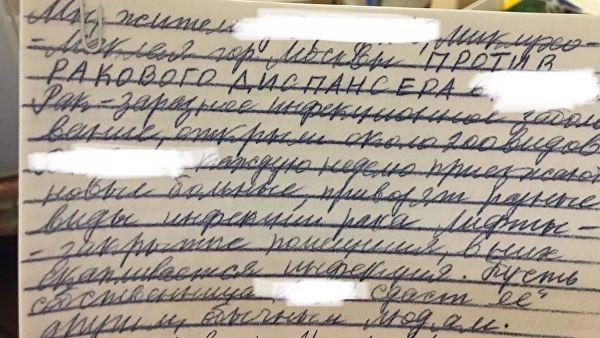 Мы, жители Миклухо-
-Маклая гор Москвы ПРОТИВ
РАКОВОГО ДИСПАНСЕРА в
Рак-заразное инфекционное заболе
вание, открыли около 200 видов
каждую неделю приезжают
новые больные, привозят разные
виды инфекции рака. Лифты-
- закрытые помещения, в них
скапливается инфекция. Пусть
собственница сдаст "её"
другим, обычным людям.